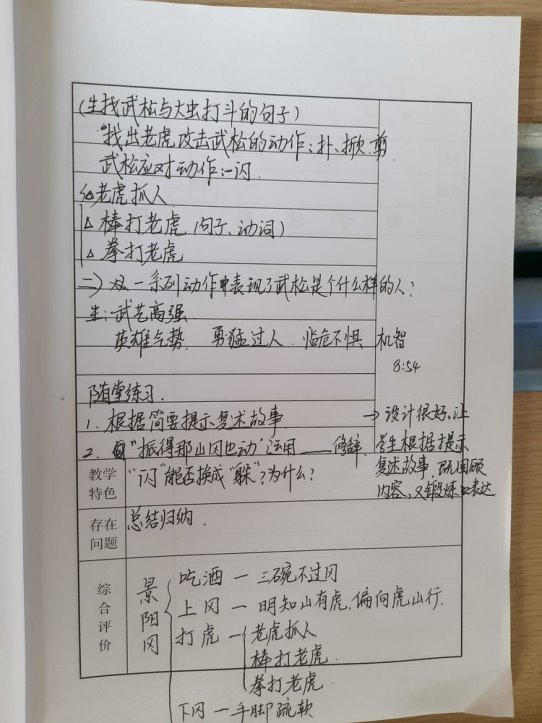 (生找武松与大虫打斗的句子)
"找出老虎攻击武松的动作:扑、掀、剪.
武松应对动作:一闪.
老虎抓人
△ 棒打老虎 (句子、动词)
△ 拳打老虎
一系列动作中表现了武松是个什么样的人?
生:武艺高强
英雄气势. 勇猛过人. 临危不惧. 机智
8:54
随堂练习.
1. 根据简要提示复述故事
→设计很好,让
2. "振得那山冈也动"运用____修辞.
学生根据提示
复述故事,既回顾
内容,又锻炼表达
教学特色
"闪"能否换成"躲"?为什么?
存在问题
总结归纳.
综合评价
景阳冈
吃酒—三碗不过冈
上冈—明知山有虎、偏向虎山行.
打虎—老虎抓人
棒打老虎.
拳打老虎.
下冈—手脚疏软